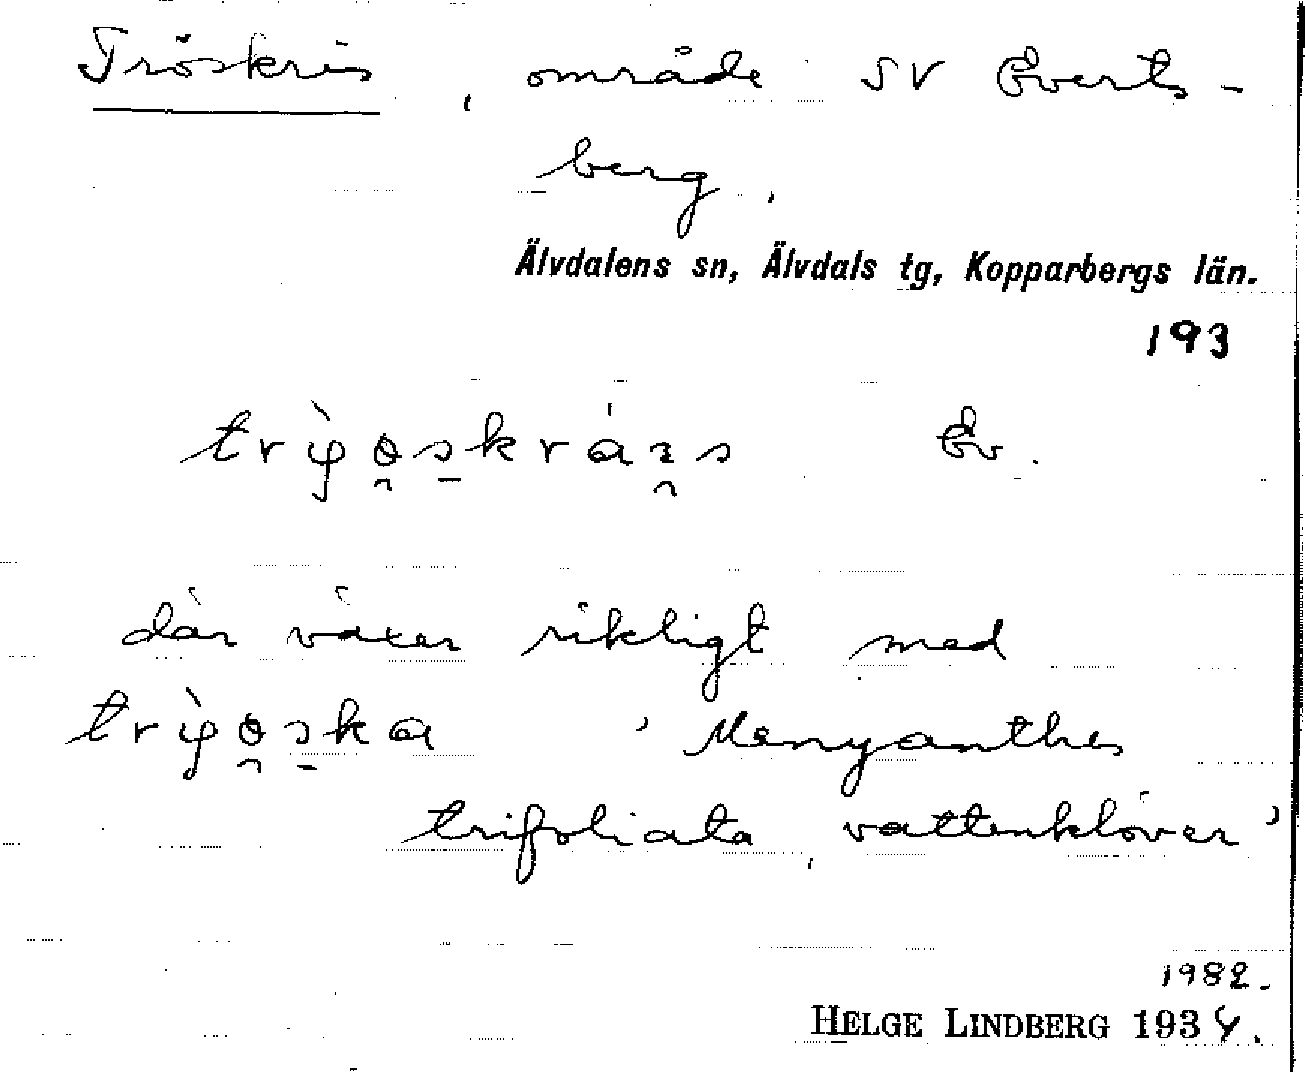 Tröskris, område SV Everts-
berg.
Älvdalens sn, Älvdals tg, Kopparbergs län.
193
Ev.
där växer rikligt med
'Menyanthes
trifoliata, vattenklöver'
1982.
HELGE LINDBERG 1934.